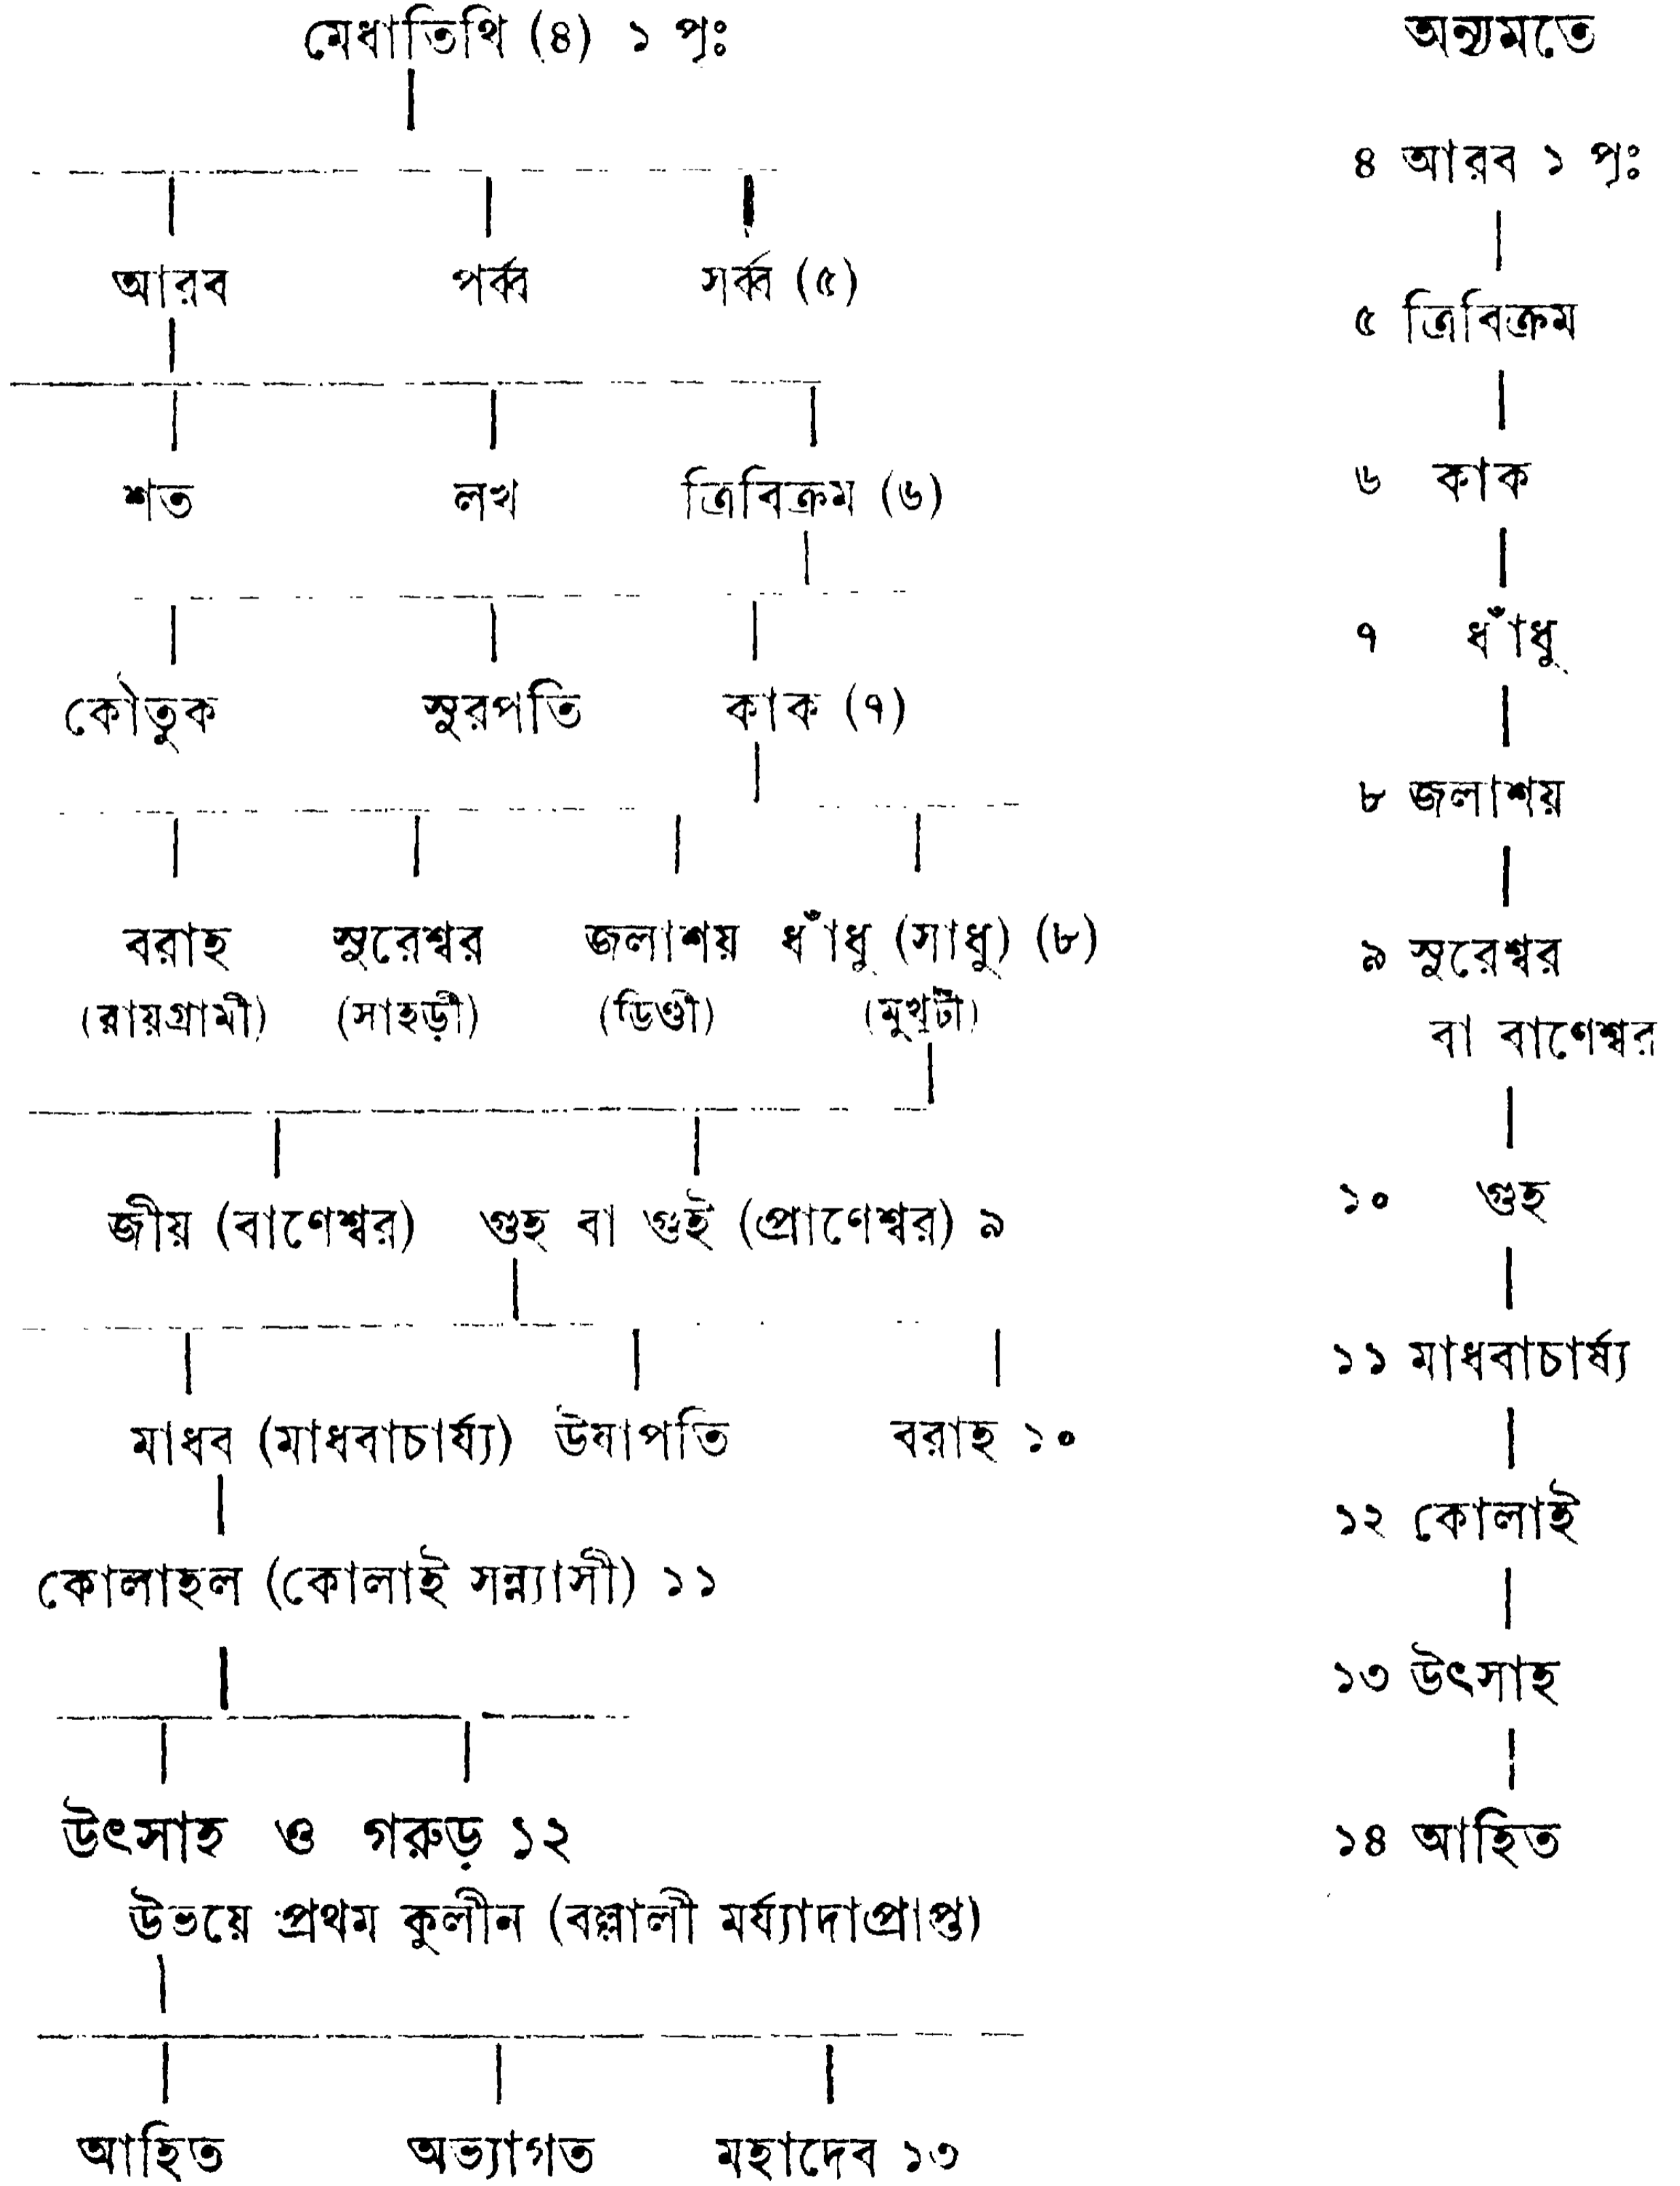 মেধাতিথি (৪) ১ পৃঃ
আরব পর্ব্ব সর্ব্ব (৫)
শত লখ ত্রিবিক্রম (৬)
কৌতুক সুরপতি কাক (৭)
বরাহ সুরেশ্বর জলাশয় ধাঁধু (সাধু) (৮)
(রায়গ্রামী) (সাহড়ী) (ডিণ্ডী) (মুখুটী)
জীয় (বাণেশ্বর) গুহ বা গুই (প্রাণেশ্বর) ৯
মাধব (মাধবাচার্য্য) উষাপতি বরাহ ১০
কোলাহল (কোলাই সন্ন্যাসী) ১১
উৎসাহ ও গরুড় ১২
উভয়ে প্রথম কুলীন (বল্লালী মর্য্যাদাপ্রাপ্ত)
আহিত অভ্যাগত মহাদেব ১৩
অন্যমতে
৪ আরব ১ পৃঃ
৫ ত্রিবিক্রম
৬ কাক
৭ ধাঁধু
৮ জলাশয়
৯ সুরেশ্বর
বা বাণেশ্বর
১০ গুহ
১১ মাধবাচার্ষ্য
১২ কোলাই
১৩ উৎসাহ
১৪ আহিত